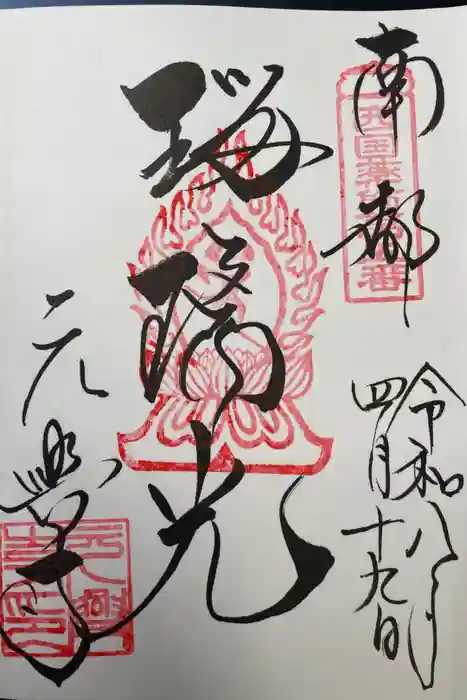 南都
西国薬師第五番
令和八年
四月十九日
瑠璃光
元興寺
元興
寺印